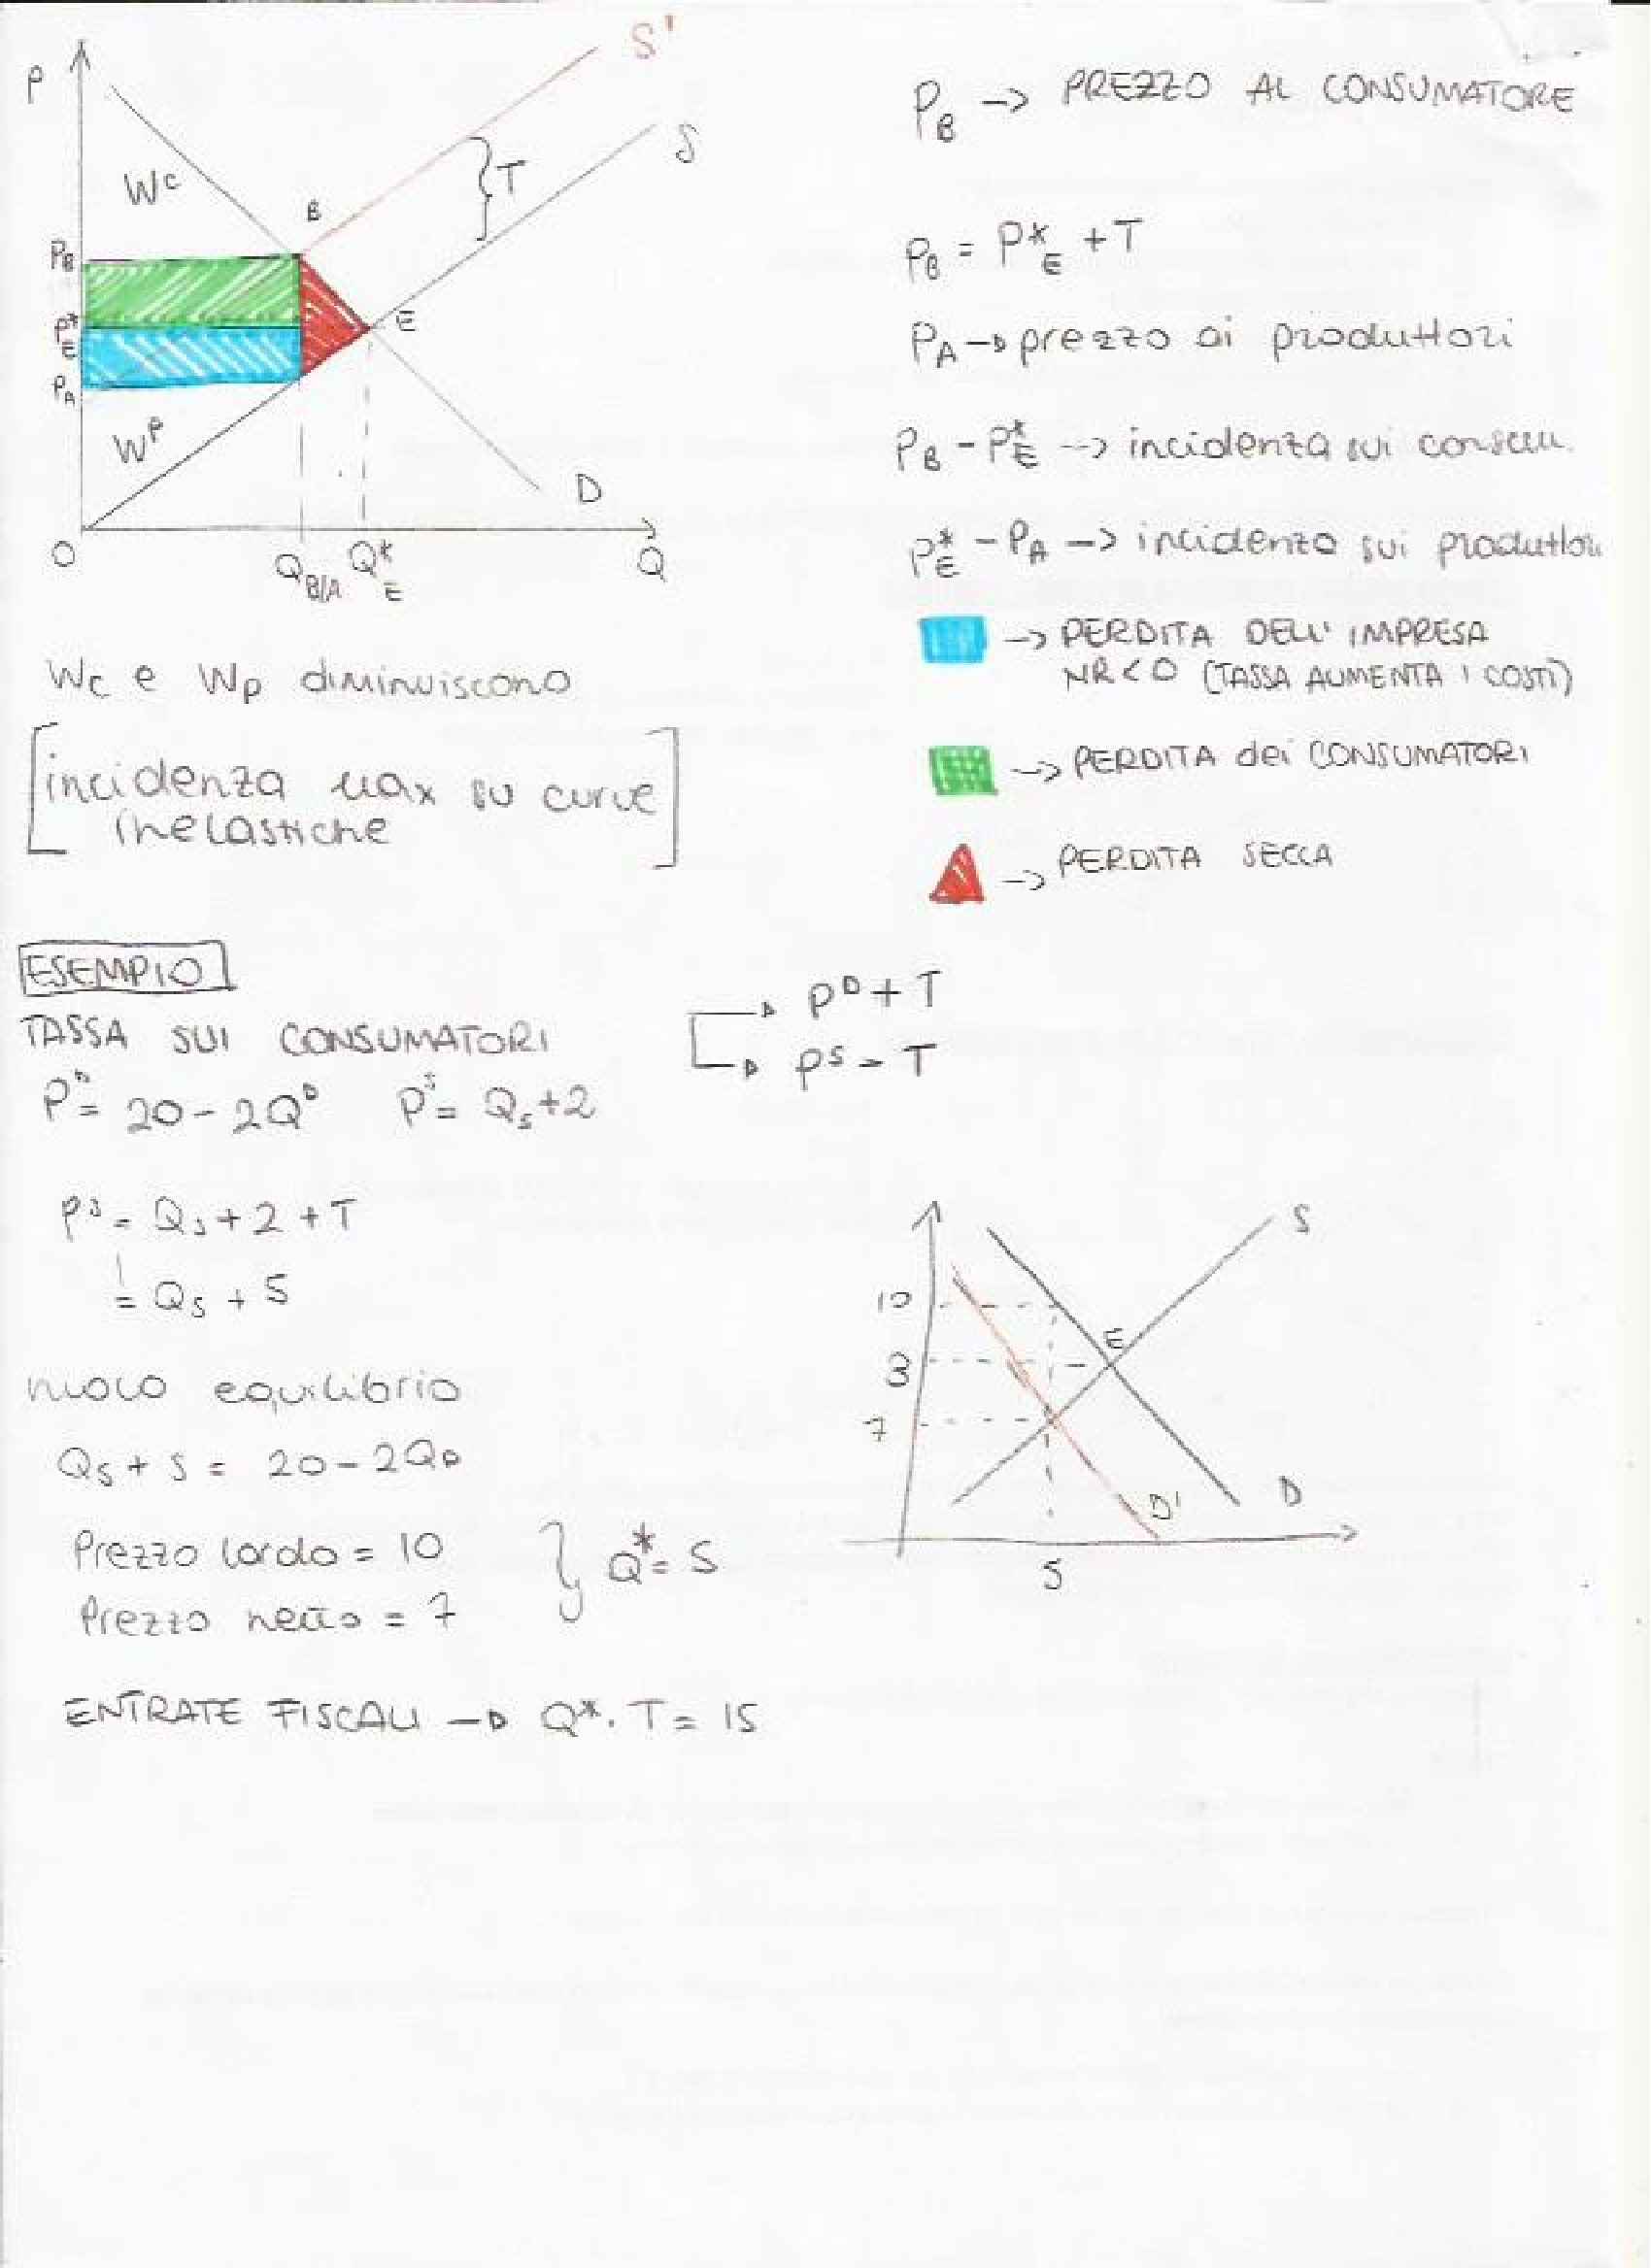 P
S'
S
T
W^C
B
P_B
P*_E
E
P_A
W^P
D
O
Q_B/A
Q*_E
Q
P_B -> PREZZO AL CONSUMATORE
P_B = P*_E + T
P_A -> prezzo ai produttori
P_B - P*_E --> incidenza sui consum.
P*_E - P_A -> incidenza sui produttori
-> PERDITA DELL' IMPRESA
NR<0 (TASSA AUMENTA I COSTI)
-> PERDITA dei CONSUMATORI
-> PERDITA SECCA
Wc e Wp diminuiscono
[incidenza max su curve
inelastiche]
ESEMPIO
TASSA SUI CONSUMATORI
P^D + T
P^S - T
P^D = 20 - 2Q^D P^S = Q_S + 2
P^S = Q_S + 2 + T
= Q_S + 5
nuovo equilibrio
Q_S + 5 = 20 - 2Q_D
Prezzo lordo = 10
Prezzo netto = 7
} Q* = 5
ENTRATE FISCALI -> Q* · T = 15
S
10
E
8
7
D'
D
5